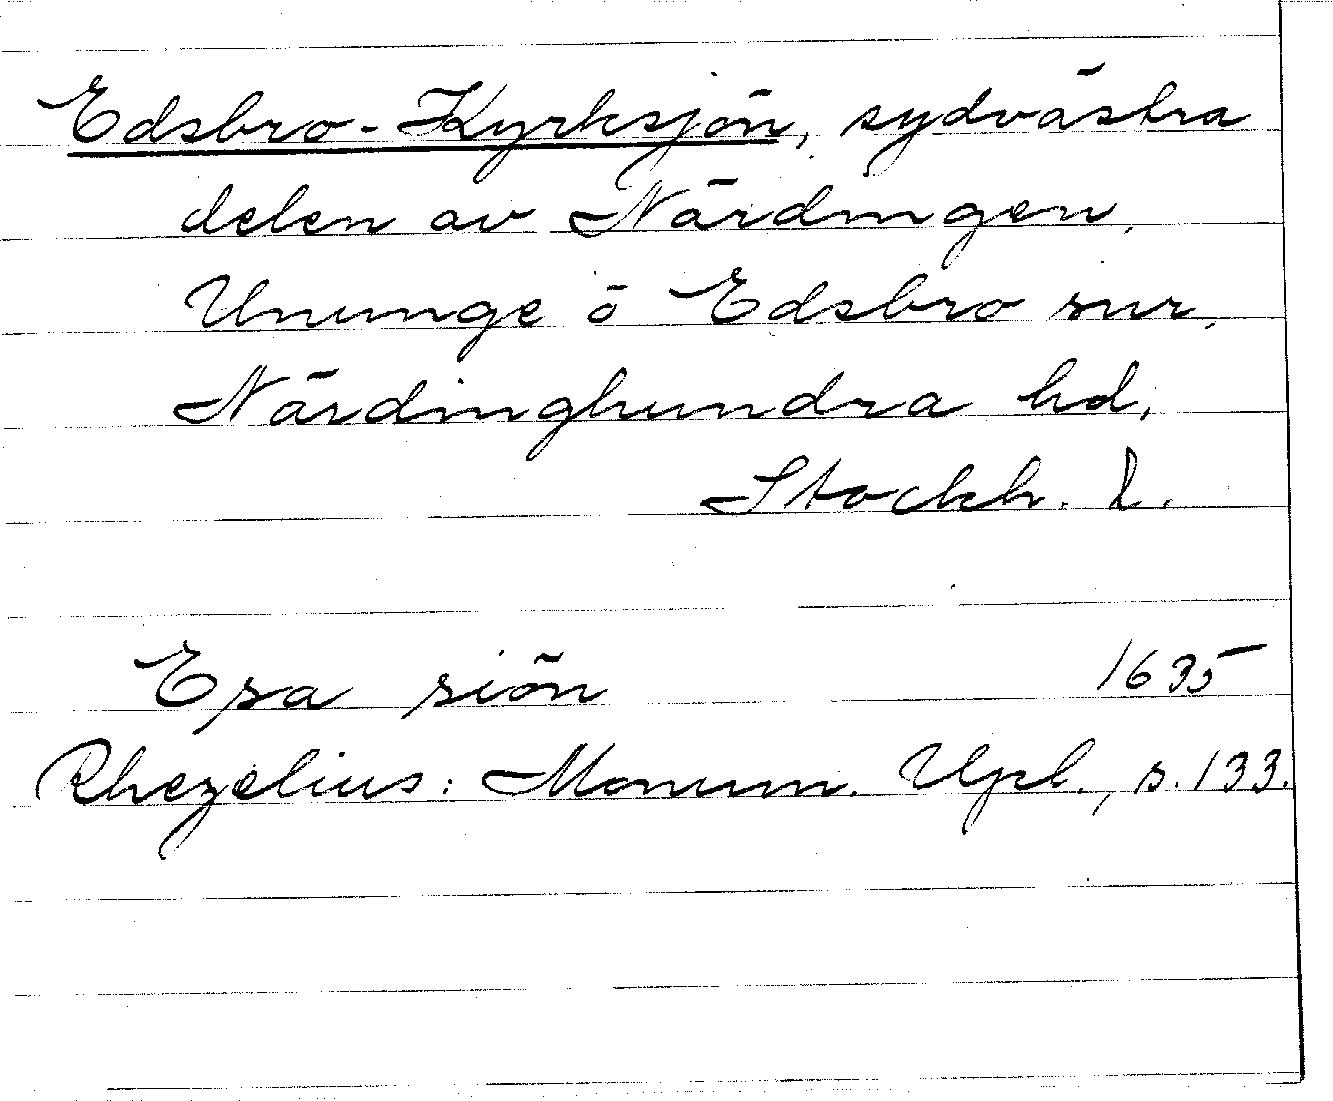 Edsbro-Kyrksjön, sydvästra
delen av Närdingen,
Ununge o Edsbro snr,
Närdinghundra hd,
Stockh. l.
Esa siön 1635
Rhezelius: Monum. Upl., s. 133.